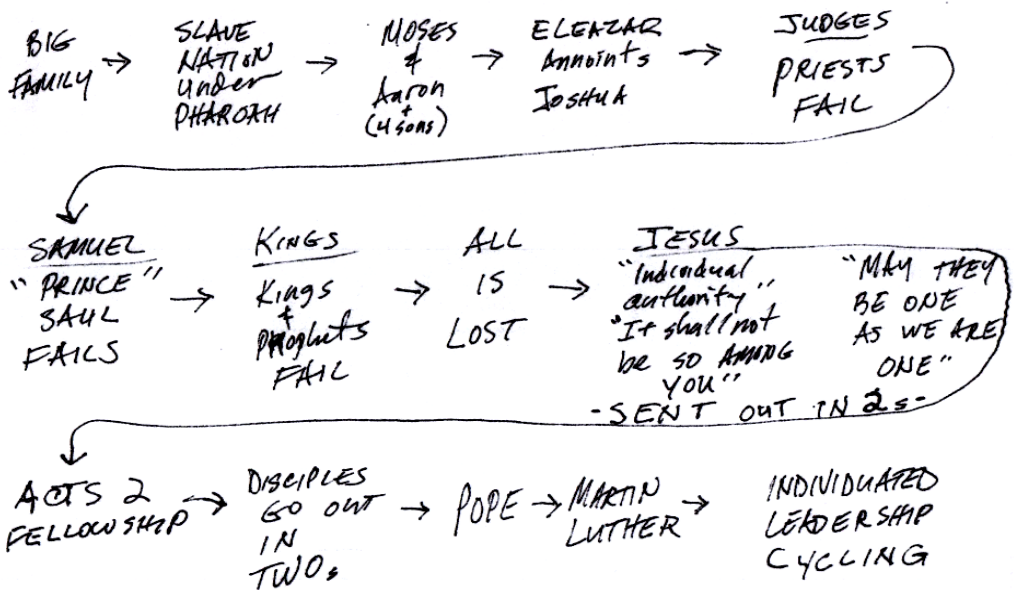 BIG
FAMILY →
SLAVE
NATION
under
PHAROAH →
MOSES
&
Aaron
+
(4 sons) →
ELEAZAR
Annoints
JOSHUA →
JUDGES
PRIESTS
FAIL
SAMUEL
"PRINCE"
SAUL
FAILS →
KINGS
Kings
+
Prophets
FAIL →
ALL
IS
LOST →
JESUS
"Individual
authority"
"It shall not
be so AMONG
YOU"
"MAY THEY
BE ONE
AS WE ARE
ONE"
-SENT OUT IN 2s-
ACTS 2
FELLOWSHIP →
DISCIPLES
GO OUT
IN
TWOs →
POPE →
MARTIN
LUTHER →
INDIVIDUATED
LEADERSHIP
CYCLING